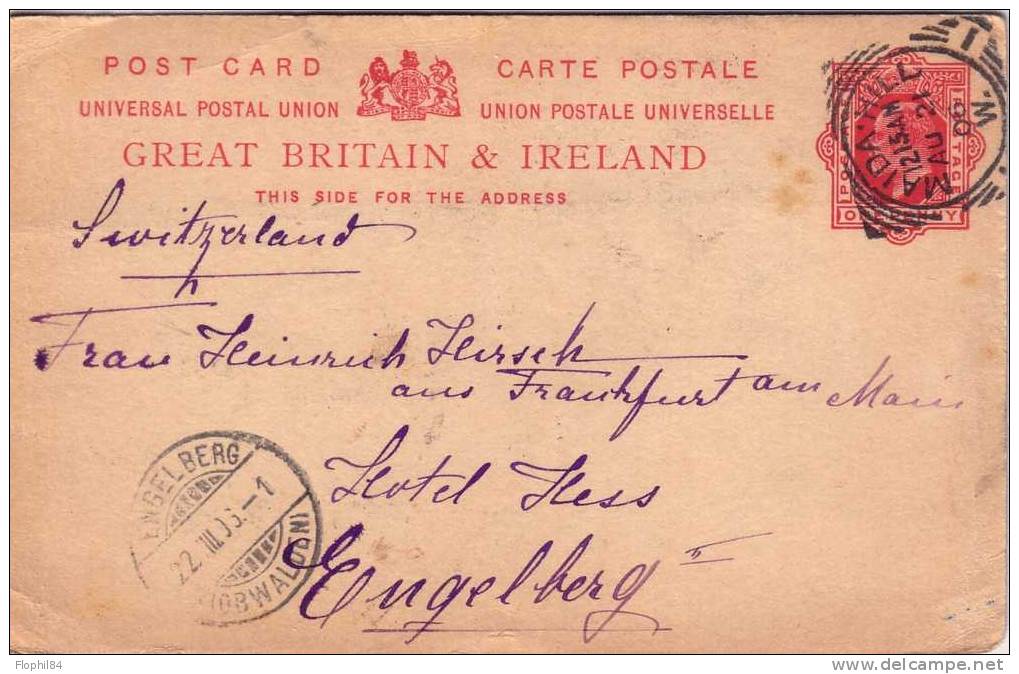 POST CARD CARTE POSTALE
UNIVERSAL POSTAL UNION UNION POSTALE UNIVERSELLE
GREAT BRITAIN & IRELAND
THIS SIDE FOR THE ADDRESS
MAIDA HILL W.
12.15 AM
AU 21
06
1
POSTAGE
ONE PENNY
Switzerland
Frau Heinrich Hirsch
aus Frankfurt am Main
Hotel Hess
Engelberg
ENGELBERG
(OBWALDEN)
Flophil84
delcampe.net